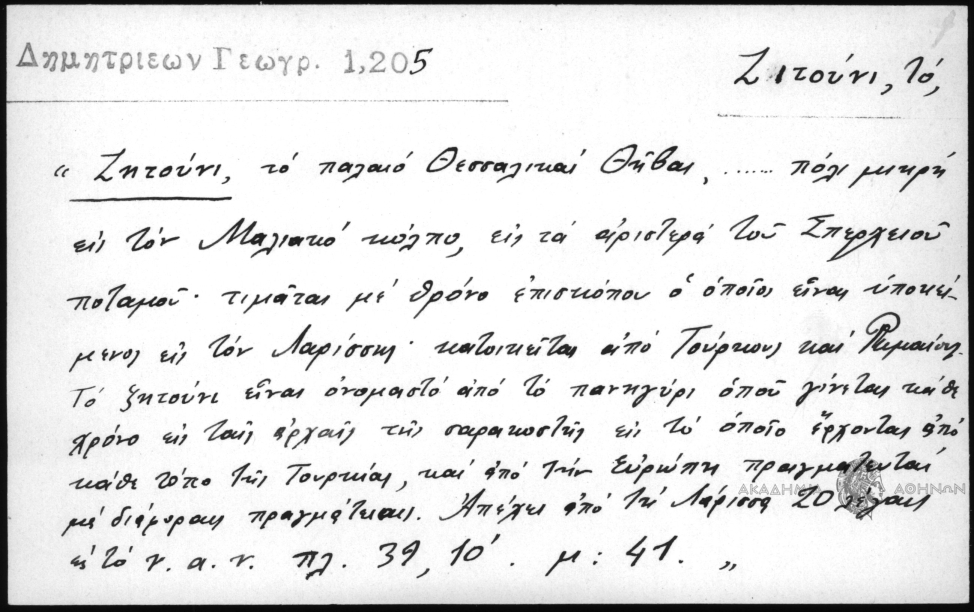 Δημητριεων Γεωγρ. 1,205
Ζιτούνι, τό,
" Ζητούνι, τό παλαιό Θεσσαλικαί Θῆβαι, ...... πόλι μικρή
εἰς τόν Μαλιακό κόλπο, εἰς τά ἀριστερά τοῦ Σπερχειοῦ
ποταμοῦ· τιμᾶται μέ θρόνο ἐπισκόπου ὁ ὁποῖος εἶναι ὑποκεί-
μενος εἰς τόν Λαρίσσης· κατοικεῖται ἀπό Τούρκους καί Ρωμαίους.
Τό ζητούνι εἶναι ὀνομαστό ἀπό τό πανηγύρι ὁποῦ γίνεται κάθε
χρόνο εἰς ταῖς ἀρχαῖς τῆς σαρακοστῆς εἰς τό ὁποῖο ἔρχονται ἀπό
κάθε τόπο τῆς Τουρκίας, καί ἀπό τήν Εὐρώπη πραγματευταί
μέ διάφοραις πραγμάτειαις. Ἀπέχει ἀπό τή Λάρισσα 20 λέγαις
εἰς τό ν. α. ν. πλ. 39, 10'. μ: 41. "
ΑΚΑΔΗΜΙΑ ΑΘΗΝΩΝ